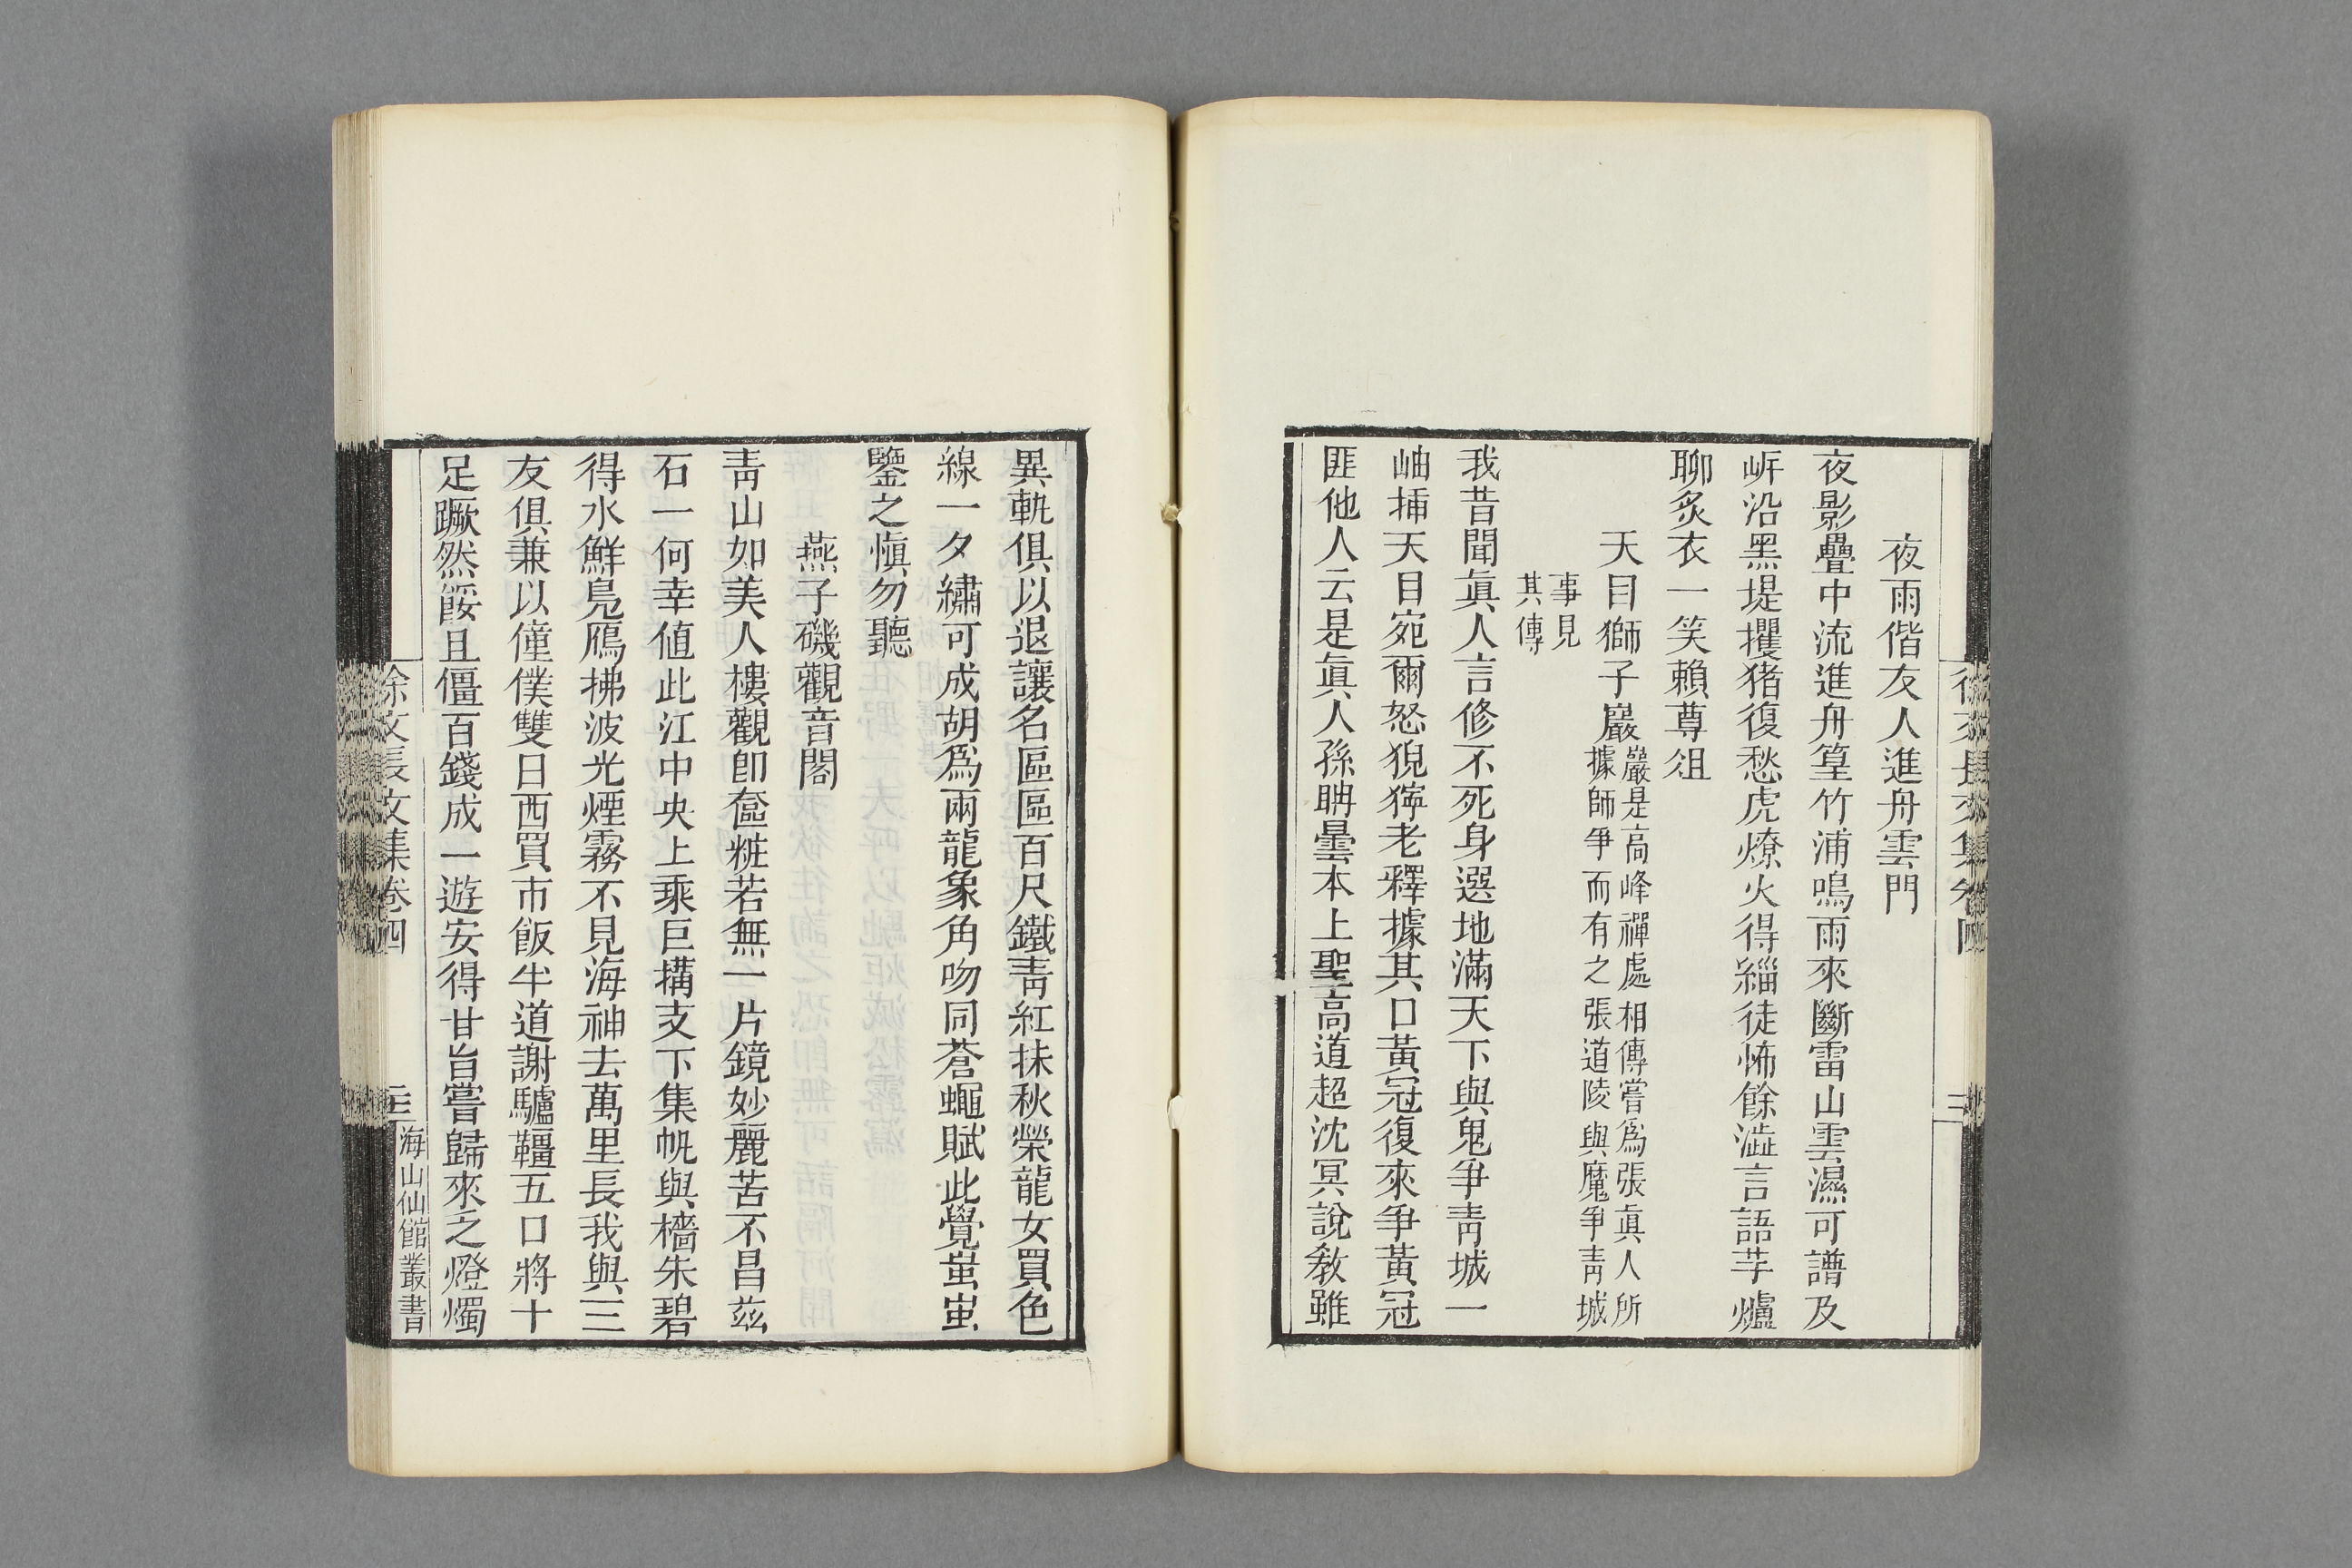 夜雨偕友人進舟雲門
夜影疊中流進舟篁竹浦鳴雨來斷雷山雲濕可譜及
㟁沿黑堤攫猪復愁虎燎火得緇徒怖餘澁言語芋爐
聊炙衣一笑賴尊俎
天目獅子巖
巖是高峰禪處相傳嘗爲張眞人所
據師爭而有之張道陵與魔爭靑城
事見
其傳
我昔聞眞人言修不死身選地滿天下與鬼爭靑城一
岫揷天目宛爾怒猊獰老釋據其口黃冠復來爭黃冠
匪他人云是眞人孫聃曇本上聖高道超沈冥說敎雖
異軌俱以退讓名區區百尺鐵靑紅抹秋榮龍女買色
線一夕繡可成胡爲兩龍象角吻同蒼蠅賦此覺蚩蚩
鑒之愼勿聽
燕子磯觀音閣
靑山如美人樓觀卽奩粧若無一片鏡妙麗苦不昌茲
石一何幸値此江中央上乘巨搆支下集帆與檣朱碧
得水鮮鳧鴈拂波光煙霧不見海神去萬里長我與三
友俱兼以僮僕雙日西買市飯半道謝驢韁五口將十
足蹶然餒且僵百錢成一遊安得甘旨嘗歸來乏燈燭
徐文長文集卷四
海山仙館叢書